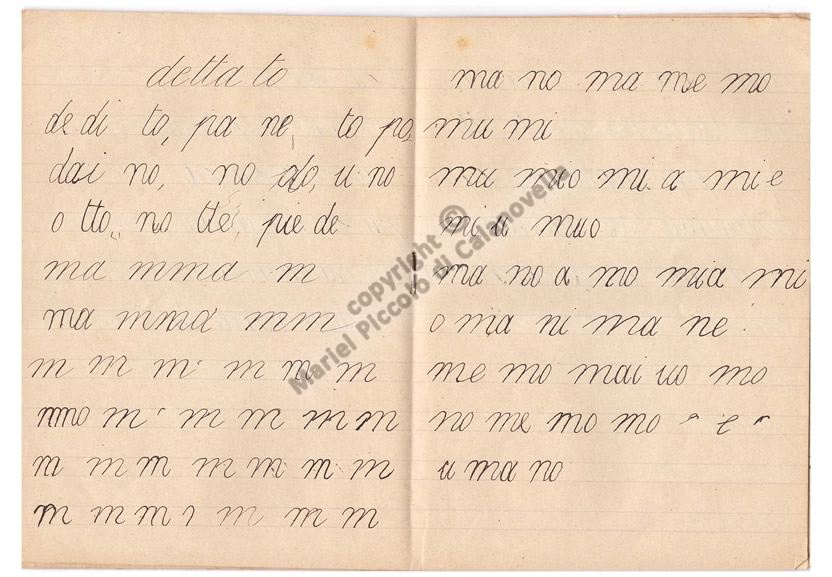 detta to
de di to, pa ne, to po,
dai no, no do, u no
o tto, no tte, pie de
ma mma m
ma mma mm
m m m m m m
mmo m m m m m
m m m m m m m
m m m m m m
ma no ma me mo
mu mi
mu muo mi a mi e
mi a muo
ma no a mo mia mi
o ma ni ma ne
me mo mai uo mo
no me mo mo e
u ma no
copyright ©
Mariel Piccolo di Calanovella